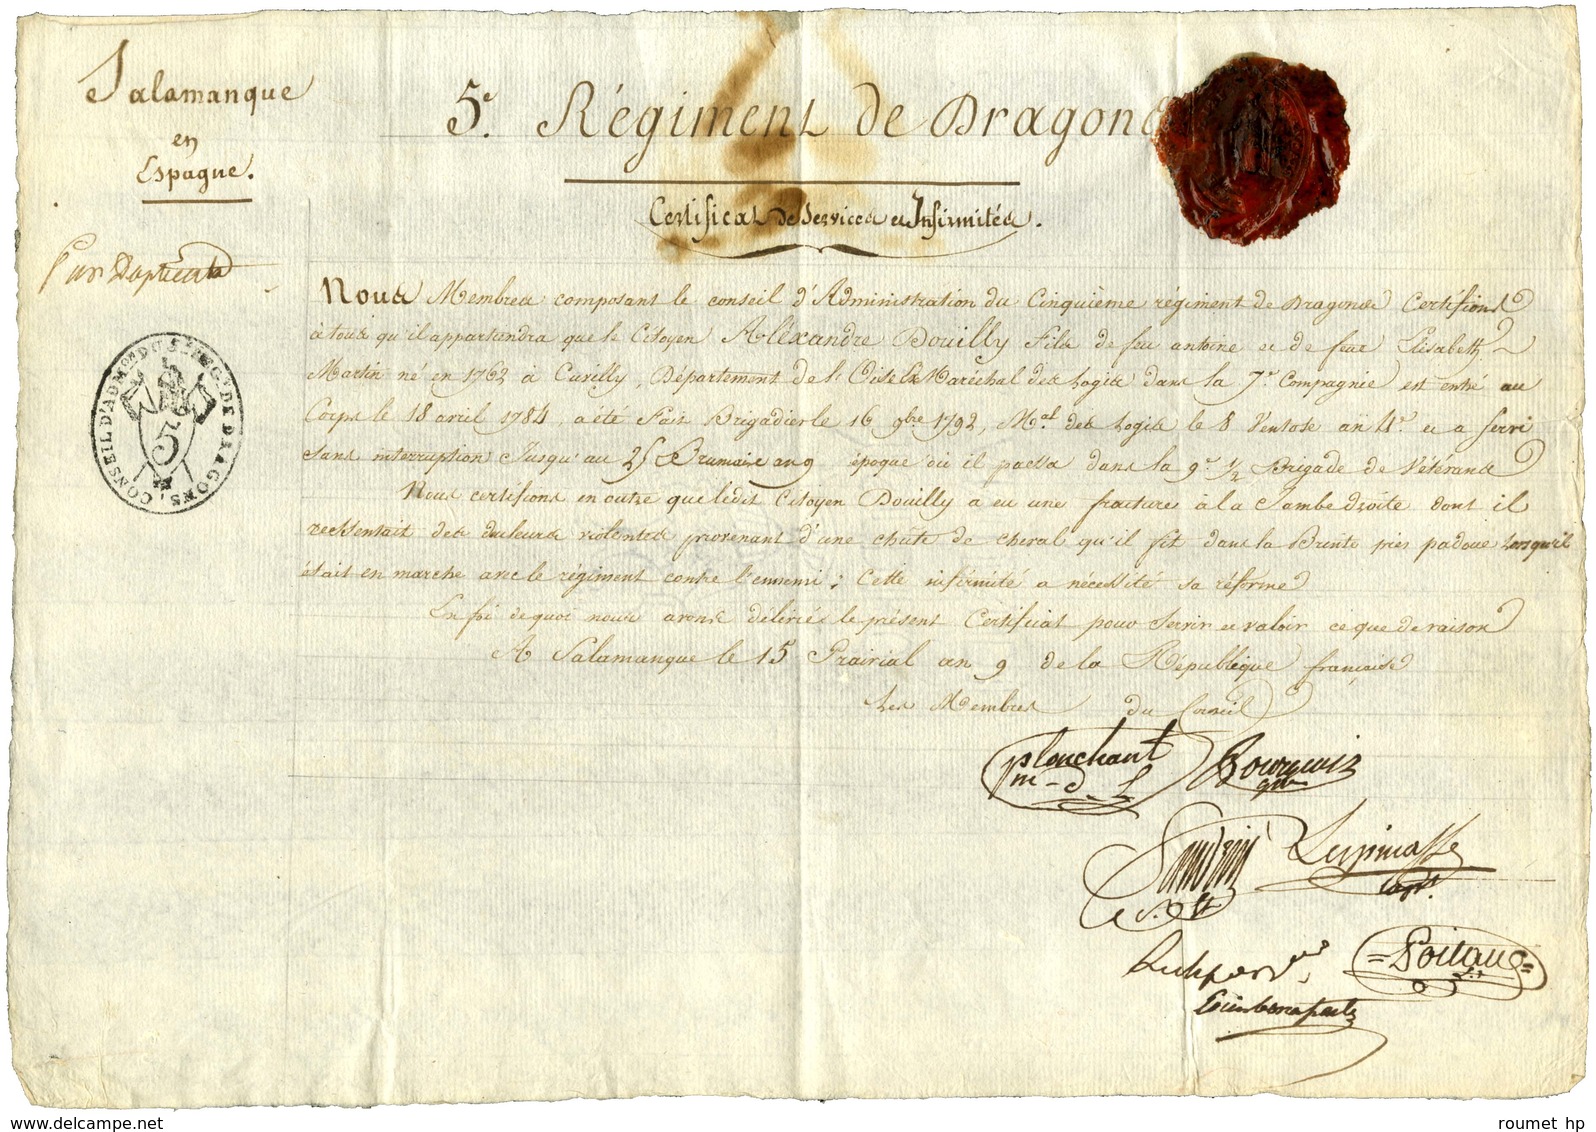 Salamanque
en
Espagne.
Par Duplicata
5e. Régiment de Dragons
Certificat de Services et Infirmités.
CONSEIL D'ADMon DU 5e REGt DE DRAGONS
5
Nous Membres composant le conseil d'Administration du Cinquième régiment de Dragons Certifions
à tous qu'il appartiendra que le Citoyen Aléxandre Douilly Fils de feu antoine et de feue Elisabeth
Martin né en 1762 à Cuvilly Département de l'Oise Ex Maréchal des Logis dans la 7e Compagnie est entré au
Corps le 18 avril 1784, a été Fait Brigadier le 16 9bre 1792, Mal des Logis le 8 Ventose an 4e. et a servi
sans interruption Jusqu'au 25 Brumaire an 9 époque où il passa dans la 9e 1/2 Brigade de Vétérans
Nous certifions en outre que lédit Citoyen Douilly a eu une fracture à la Jambe Droite dont il
ressentait des douleurs violentes provenant d'une chûte de cheval qu'il fit dans la Brenta près padoue Lorsqu'il
était en marche avec le régiment contre l'ennemi; Cette infirmité a nécessité sa réforme
En foi de quoi nous avons délivrés le présent Certificat pour servir et valoir ce que de raison
A Salamanque le 15 Prairial an 9 de la République française
Les Membres du Conseil
plouchant Bourgeois
m-d-L
Lespinasse
capne.
s. Lt
Poitaux
Louis bonaparte
roumet hp